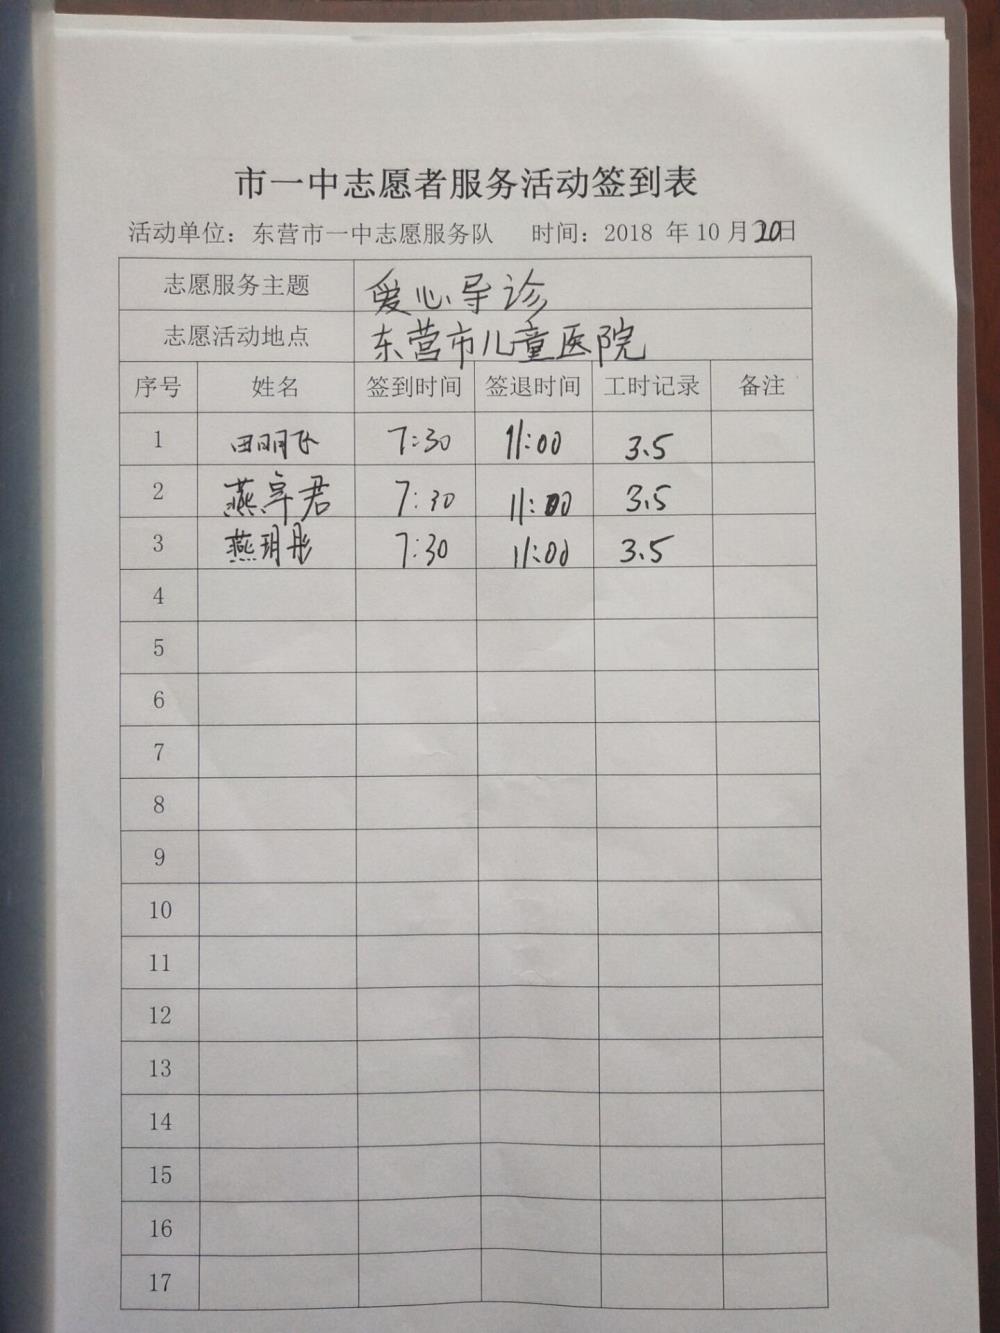 市一中志愿者服务活动签到表
活动单位：东营市一中志愿服务队 时间：2018 年 10 月 20日
志愿服务主题 爱心导诊
志愿活动地点 东营市儿童医院
序号 姓名 签到时间 签退时间 工时记录 备注
1 田明飞 7:30 11:00 3.5
2 燕君 7:30 11:00 3.5
3 燕玥彤 7:30 11:00 3.5
4
5
6
7
8
9
10
11
12
13
14
15
16
17